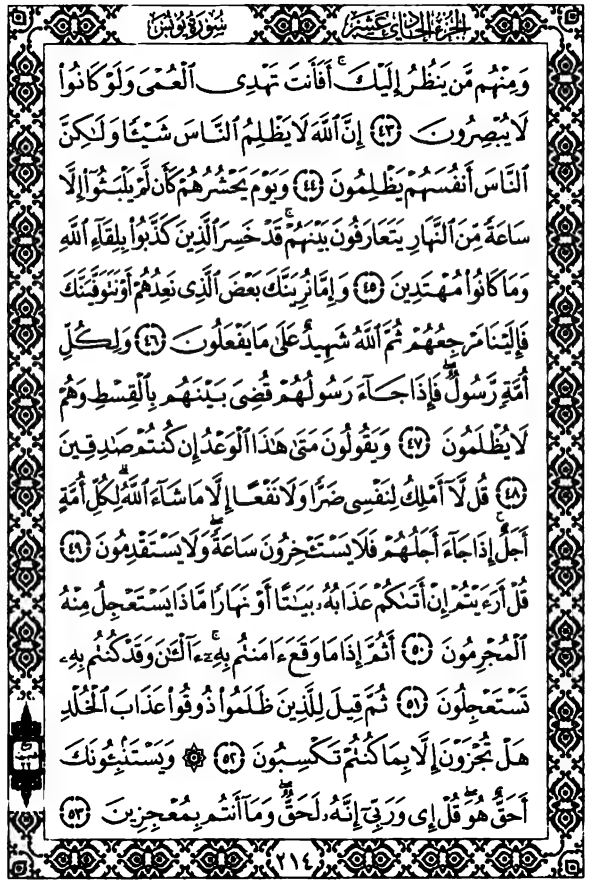 سورة يونس
الجزء الحادي عشر
وَمِنْهُم مَّن يَنظُرُ إِلَيْكَ ۚ أَفَأَنتَ تَهْدِى ٱلْعُمْىَ وَلَوْ كَانُوا۟
لَا يُبْصِرُونَ ٤٣ إِنَّ ٱللَّهَ لَا يَظْلِمُ ٱلنَّاسَ شَيْـًٔا وَلَـٰكِنَّ
ٱلنَّاسَ أَنفُسَهُمْ يَظْلِمُونَ ٤٤ وَيَوْمَ يَحْشُرُهُمْ كَأَن لَّمْ يَلْبَثُوٓا۟ إِلَّا
سَاعَةً مِّنَ ٱلنَّهَارِ يَتَعَارَفُونَ بَيْنَهُمْ ۚ قَدْ خَسِرَ ٱلَّذِينَ كَذَّبُوا۟ بِلِقَآءِ ٱللَّهِ
وَمَا كَانُوا۟ مُهْتَدِينَ ٤٥ وَإِمَّا نُرِيَنَّكَ بَعْضَ ٱلَّذِى نَعِدُهُمْ أَوْ نَتَوَفَّيَنَّكَ
فَإِلَيْنَا مَرْجِعُهُمْ ثُمَّ ٱللَّهُ شَهِيدٌ عَلَىٰ مَا يَفْعَلُونَ ٤٦ وَلِكُلِّ
أُمَّةٍ رَّسُولٌ ۖ فَإِذَا جَآءَ رَسُولُهُمْ قُضِىَ بَيْنَهُم بِٱلْقِسْطِ وَهُمْ
لَا يُظْلَمُونَ ٤٧ وَيَقُولُونَ مَتَىٰ هَـٰذَا ٱلْوَعْدُ إِن كُنتُمْ صَـٰدِقِينَ
٤٨ قُل لَّآ أَمْلِكُ لِنَفْسِى ضَرًّا وَلَا نَفْعًا إِلَّا مَا شَآءَ ٱللَّهُ ۗ لِكُلِّ أُمَّةٍ
أَجَلٌ ۚ إِذَا جَآءَ أَجَلُهُمْ فَلَا يَسْتَـْٔخِرُونَ سَاعَةً ۖ وَلَا يَسْتَقْدِمُونَ ٤٩
قُلْ أَرَءَيْتُمْ إِنْ أَتَىٰكُمْ عَذَابُهُۥ بَيَـٰتًا أَوْ نَهَارًا مَّاذَا يَسْتَعْجِلُ مِنْهُ
ٱلْمُجْرِمُونَ ٥٠ أَثُمَّ إِذَا مَا وَقَعَ ءَامَنتُم بِهِۦٓ ۚ ءَآلْـَٔـٰنَ وَقَدْ كُنتُم بِهِۦ
تَسْتَعْجِلُونَ ٥١ ثُمَّ قِيلَ لِلَّذِينَ ظَلَمُوا۟ ذُوقُوا۟ عَذَابَ ٱلْخُلْدِ
هَلْ تُجْزَوْنَ إِلَّا بِمَا كُنتُمْ تَكْسِبُونَ ٥٢ ۞ وَيَسْتَنۢبِـُٔونَكَ
أَحَقٌّ هُوَ ۖ قُلْ إِى وَرَبِّىٓ إِنَّهُۥ لَحَقٌّ ۖ وَمَآ أَنتُم بِمُعْجِزِينَ ٥٣
٢١٤